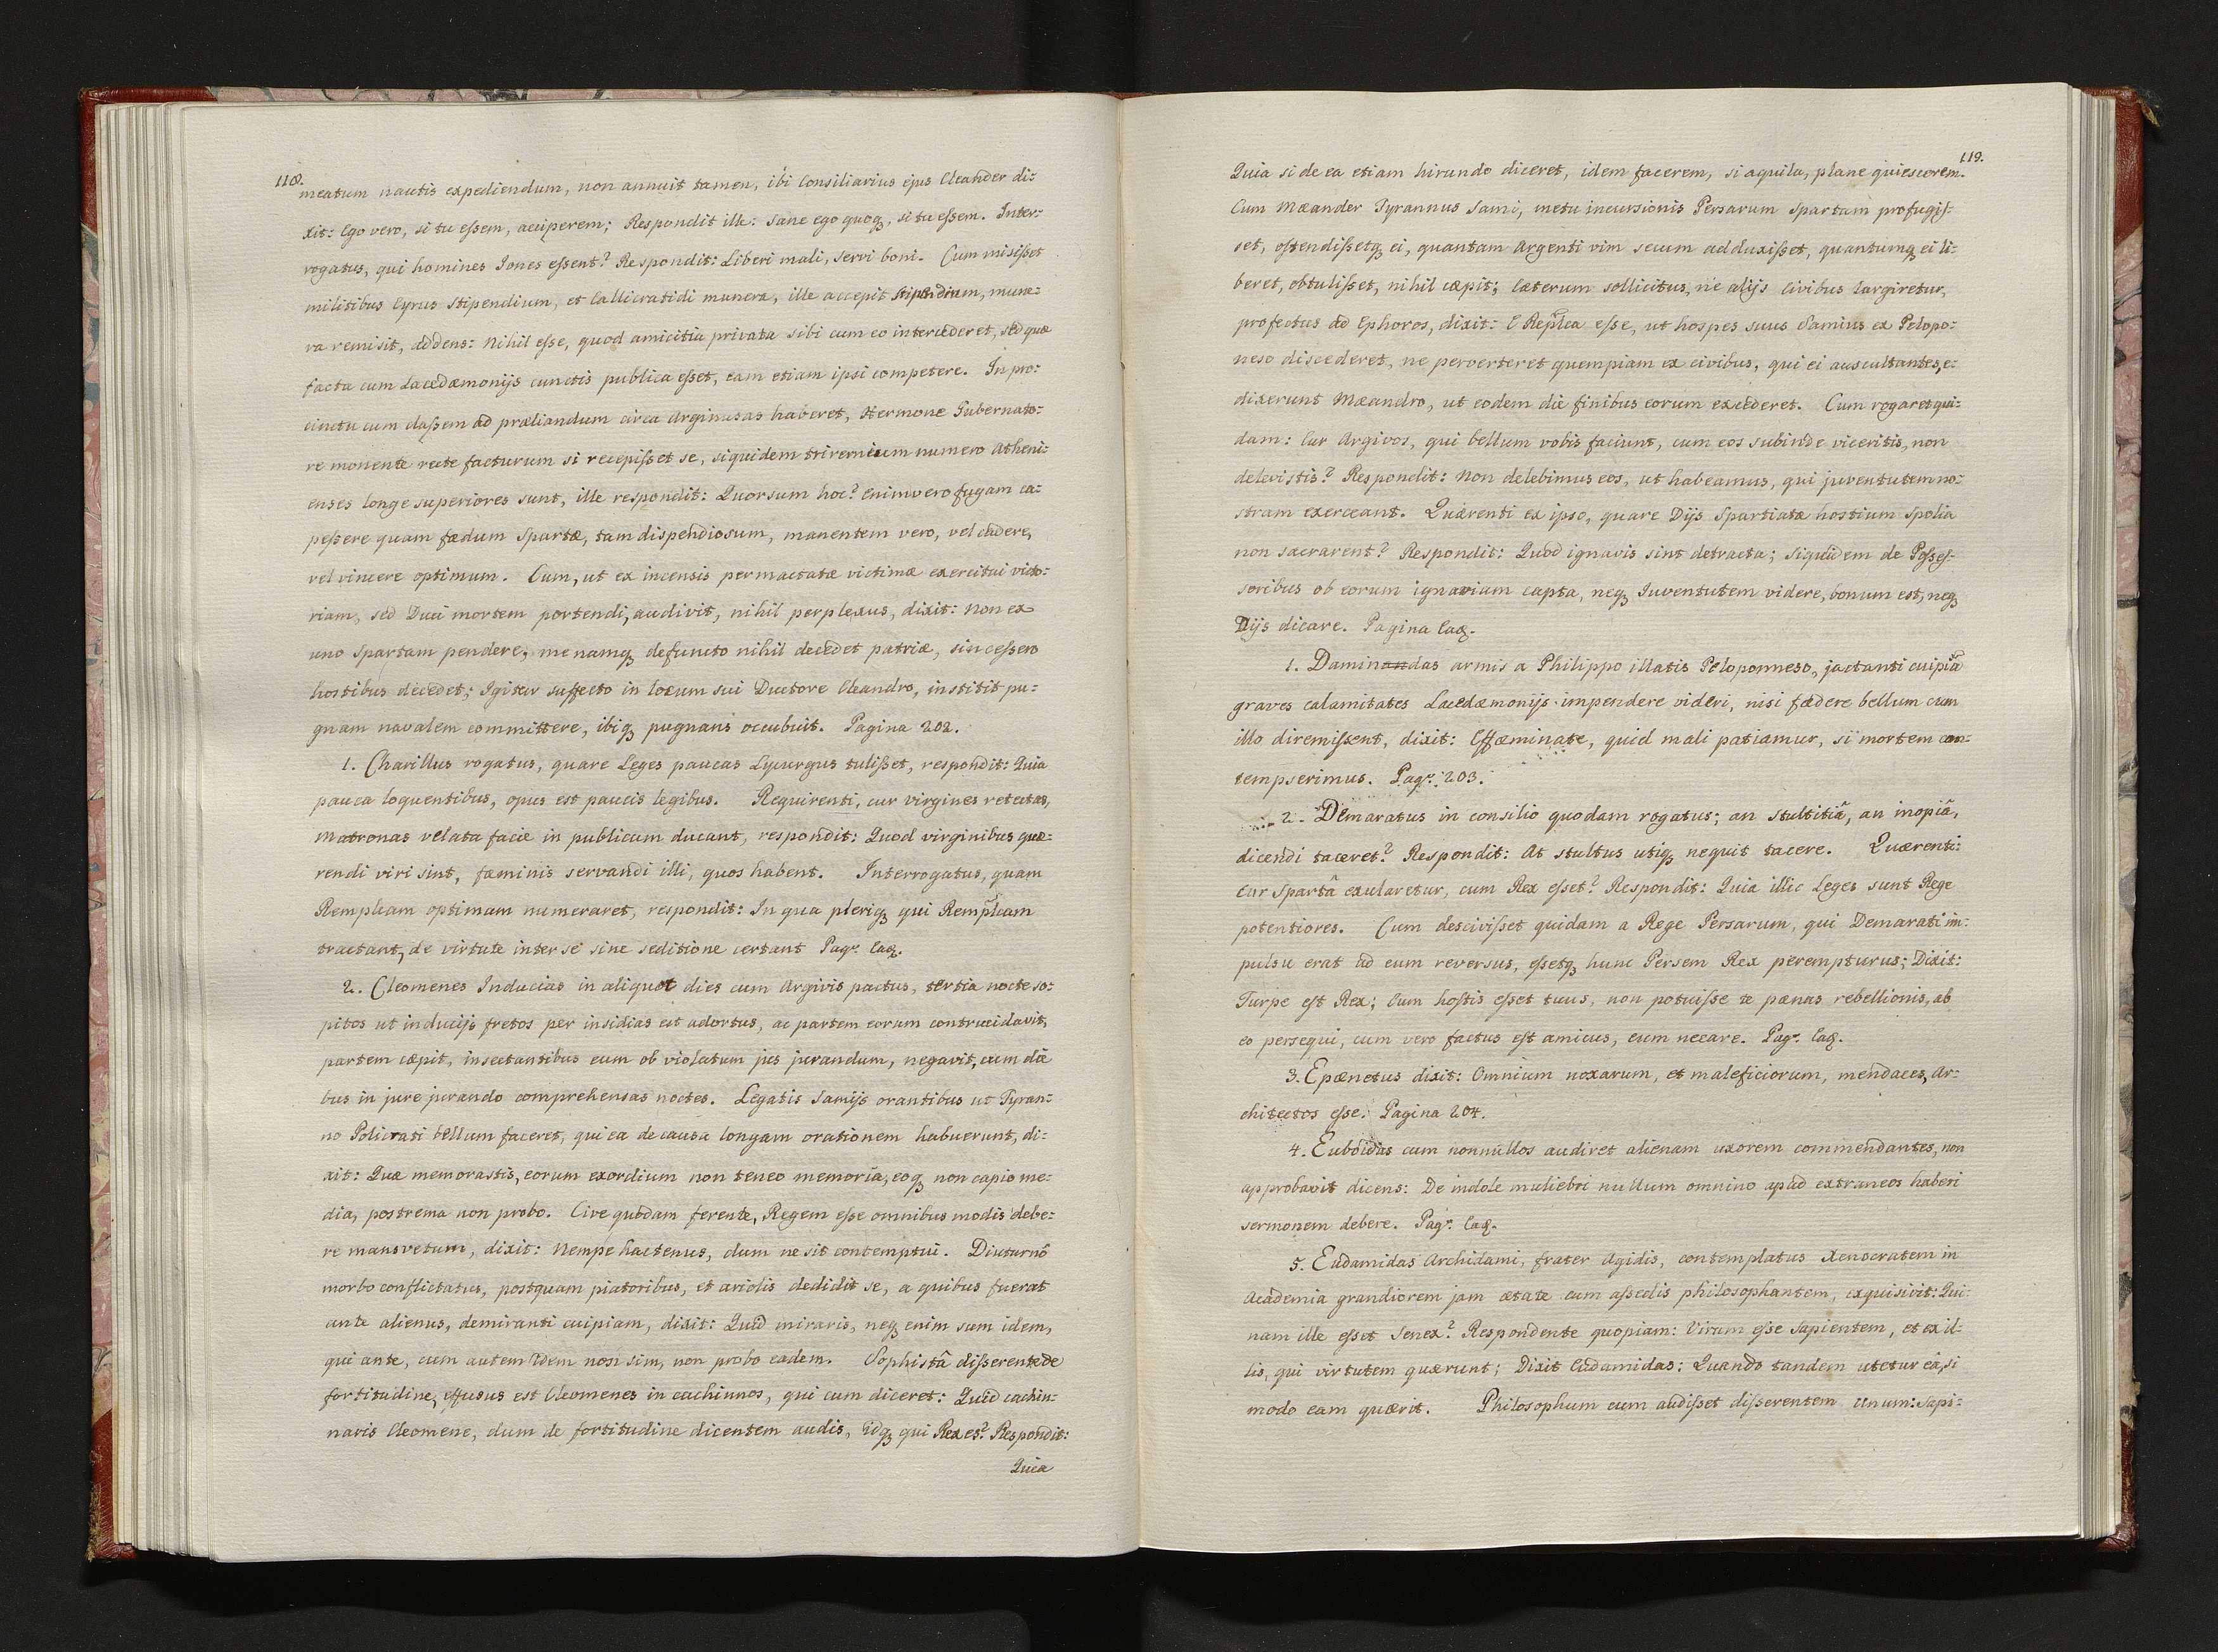 118.
meatum nautis expediendum, non annuit tamen, ibi Consiliarius ejus Cleander di:
xit: Ego vero, si tu eßem, acciperem; Respondit ille: Sane ego quoq, si tu eßem. Inter:
rogatus, qui homines Jones eßent? Respondit: Liberi mali, servi boni. Cum misißet
militibus Cyrus Stipendium, et Callicratidi munera, ille accepit Stipendium, mune:
ra remisit, addens: Nihil eße, quod amicitia privata sibi cum eo intercederet, sed quæ
facta cum Lacedæmonijs cunctis publica eßet, eam etiam ipsi competere. In pro:
cinctu cum claßem ad præliandum circa Arginusas haberet, Hermone Gubernato:
re monente recte facturum si recepißet se, siquidem triremium numero Atheni:
enses longe superiores sunt, ille respondit: Quorsum hoc? Enimvero fugam ca:
peßere quam fædum Spartæ, tam dispendiosum, manentem vero, vel cadere,
vel vincere optimum. Cum, ut ex incensis permactatæ victimæ exercitui victo:
riam, sed Duci mortem portendi, audivit, nihil perplexus, dixit: Non ex
uno Spartam pendere, me namq defuncto nihil decedet patriæ, sin ceßero
hostibus decedet; Igitur suffecto in locum sui Ductore Cleandro, institit pu:
gnam navalem committere, ibiq pugnans occubuit. Pagina 202.
1. Charillus rogatus, quare Leges paucas Lycurgus tulißet, respondit: Quia
pauca loquentibus, opus est paucis legibus. Requirenti, cur virgines retectas,
Matronas velata facie in publicum ducant, respondit: Quod virginibus quæ:
rendi viri sint, fæminis servandi illi, quos habent. Interrogatus, quam
Rempleam optimam numeraret, respondit: In qua pleriq qui Rempleam
tractant, de virtute inter se sine seditione certant Pag. Eaq.
2. Cleomenes Inducias in aliquot dies cum Argivis pactus, tertia nocte so:
pitos ut inducijs fretos per insidias est adortus, ac partem eorum contrucidavit,
partem cæpit, insectantibus eum ob violatum jus jurandum, negavit, cum die
bus in jure jurando comprehensas noctes. Legatis Samijs orantibus ut Tyran:
no Policrati bellum faceret, qui ea de causa longam orationem habuerunt, di:
xit: Quæ memorastis, eorum exordium non teneo memoria, eoq non capio me:
dia, postrema non probo. Cive quodam ferente, Regem eße omnibus modis debe:
re mansvetum, dixit: Nempe hactenus, dum ne sit contemptui. Diuturnô
morbo conflictatus, postquam piatoribus, et ariolis dedidit se, a quibus fuerat
ante alienus, demiranti cuipiam, dixit: Quid miraris, neq enim sum idem,
qui ante, cum autem Idem non sim, non probo eadem. Sophistâ dißerente de
fortitudine, effusus est Cleomenes in cachinnos, qui cum diceret: Quid cachin:
naris Cleomene, dum de fortitudine dicentem audis, idq qui Rex es? Respondit:
Quia
119.
Quia si de ea etiam hirundo diceret, idem facerem, si aquila, plane quiescerem.
Cum Mæander Tyrannus Sami, metu incursionis Persarum Spartam profugiß:
set, ostendißetq ei, quantam Argenti vim secum adduxißet, quantumq ei li:
beret, obtulißet, nihil cæpit; Cæterum sollicitus, ne alijs Civibus largiretur,
profectus ad Ephoros, dixit: E Replea eße, ut hospes suus Samius ex Pelopo:
neso discederet, ne perverteret quempiam ex civibus, qui ei auscultantes, e:
dixerunt Mæandro, ut eodem die finibus eorum excederet. Cum rogaret qui:
dam: Cur Argivos, qui bellum vobis faciunt, cum eos subinde viceritis, non
delevistis? Respondit: Non delebimus eos, ut habeamus, qui juventutem no:
stram exerceant. Quærenti ex ipso, quare Dijs Spartiatæ hostium Spolia
non sacrarent? Respondit: Quod ignavis sint detracta; siquidem de Poßeß:
soribus ob eorum ignaviam capta, neq Iuventutem videre, bonum est, neq
Dijs dicare. Pagina Eaq.
1. Daminandas armis a Philippo illatis Peloponneso, jactanti cuipiã
graves calamitates Lacedæmonijs impendere videri, nisi fædere bellum cum
illo diremißent, dixit: Effæminate, quid mali patiamur, si mortem con:
tempserimus. Pag. 203.
2. Demaratus in consilio quodam rogatus; an stultitiâ, an inopiâ,
dicendi taceret? Respondit: At stultus utiq nequit tacere. Quærenti:
Cur Spartâ exularetur, cum Rex eßet? Respondit: Quia illic Leges sunt Rege
potentiores. Cum descivißet quidam a Rege Persarum, qui Demarati im:
pulsu erat ad eum reversus, eßetq hunc Persem Rex perempturus; Dixit:
Turpe est Rex; Cum hostis eßet tuus, non potuiße te pænas rebellionis, ab
eo persequi, cum vero factus est amicus, eum necare. Pag. Eaq.
3. Epænetus dixit: Omnium noxarum, et maleficiorum, mendaces, Ar:
chitectos eße. Pagina 204.
4. Euboidas cum nonnullos audiret alienam uxorem commendantes, non
approbavit dicens: De indole muliebri nullum omnino apud extraneos haberi
sermonem debere. Pag. Eaq.
5. Eudamidas Archidami, frater Agidis, contemplatus Xenocratem in
Academia grandiorem jam ætate cum aßeclis philosophantem, exquisivit: Qui:
nam ille eßet Senex? Respondente quopiam: Virum eße Sapientem, et ex il:
lis, qui virtutem quærunt; Dixit Eudamidas: Quando tandem utetur eâ, si
modo eam quærit. Philosophum cum audißet dißerentem Unum: Sapi: